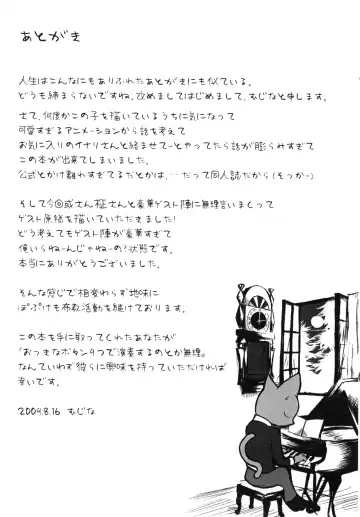 あとがき
人生はこんなにもありふれたあとがきにも似ている。
どうも締まらないですね。改めましてはじめまして、むじなと申します。
さて、何度かこの子を描いているうちに気になって
可愛すぎるアニメーションから話を考えて
お気に入りのイナリさんと絡ませてーとやってたら話が膨らみすぎて
この本が出来てしまいました。
公式とかけ離れすぎてるだとかは……だって同人誌だから(そっかー)
そして今回或さん極さんと豪華ゲスト陣に無理言いまくって
ゲスト原稿を描いていただきました!
どう考えてもゲスト陣が豪華すぎて
俺いらねーんじゃねーの?状態です。
本当にありがとうございました。
そんな感じで相変わらず地味に
ぽぷけも布教活動を続けております。
この本を手に取ってくれたあなたが
"おっきなボタン9つで演奏するのとか無理。"
なんていわず彼らに興味を持っていただければ
幸いです。
2009.8.16 むじな